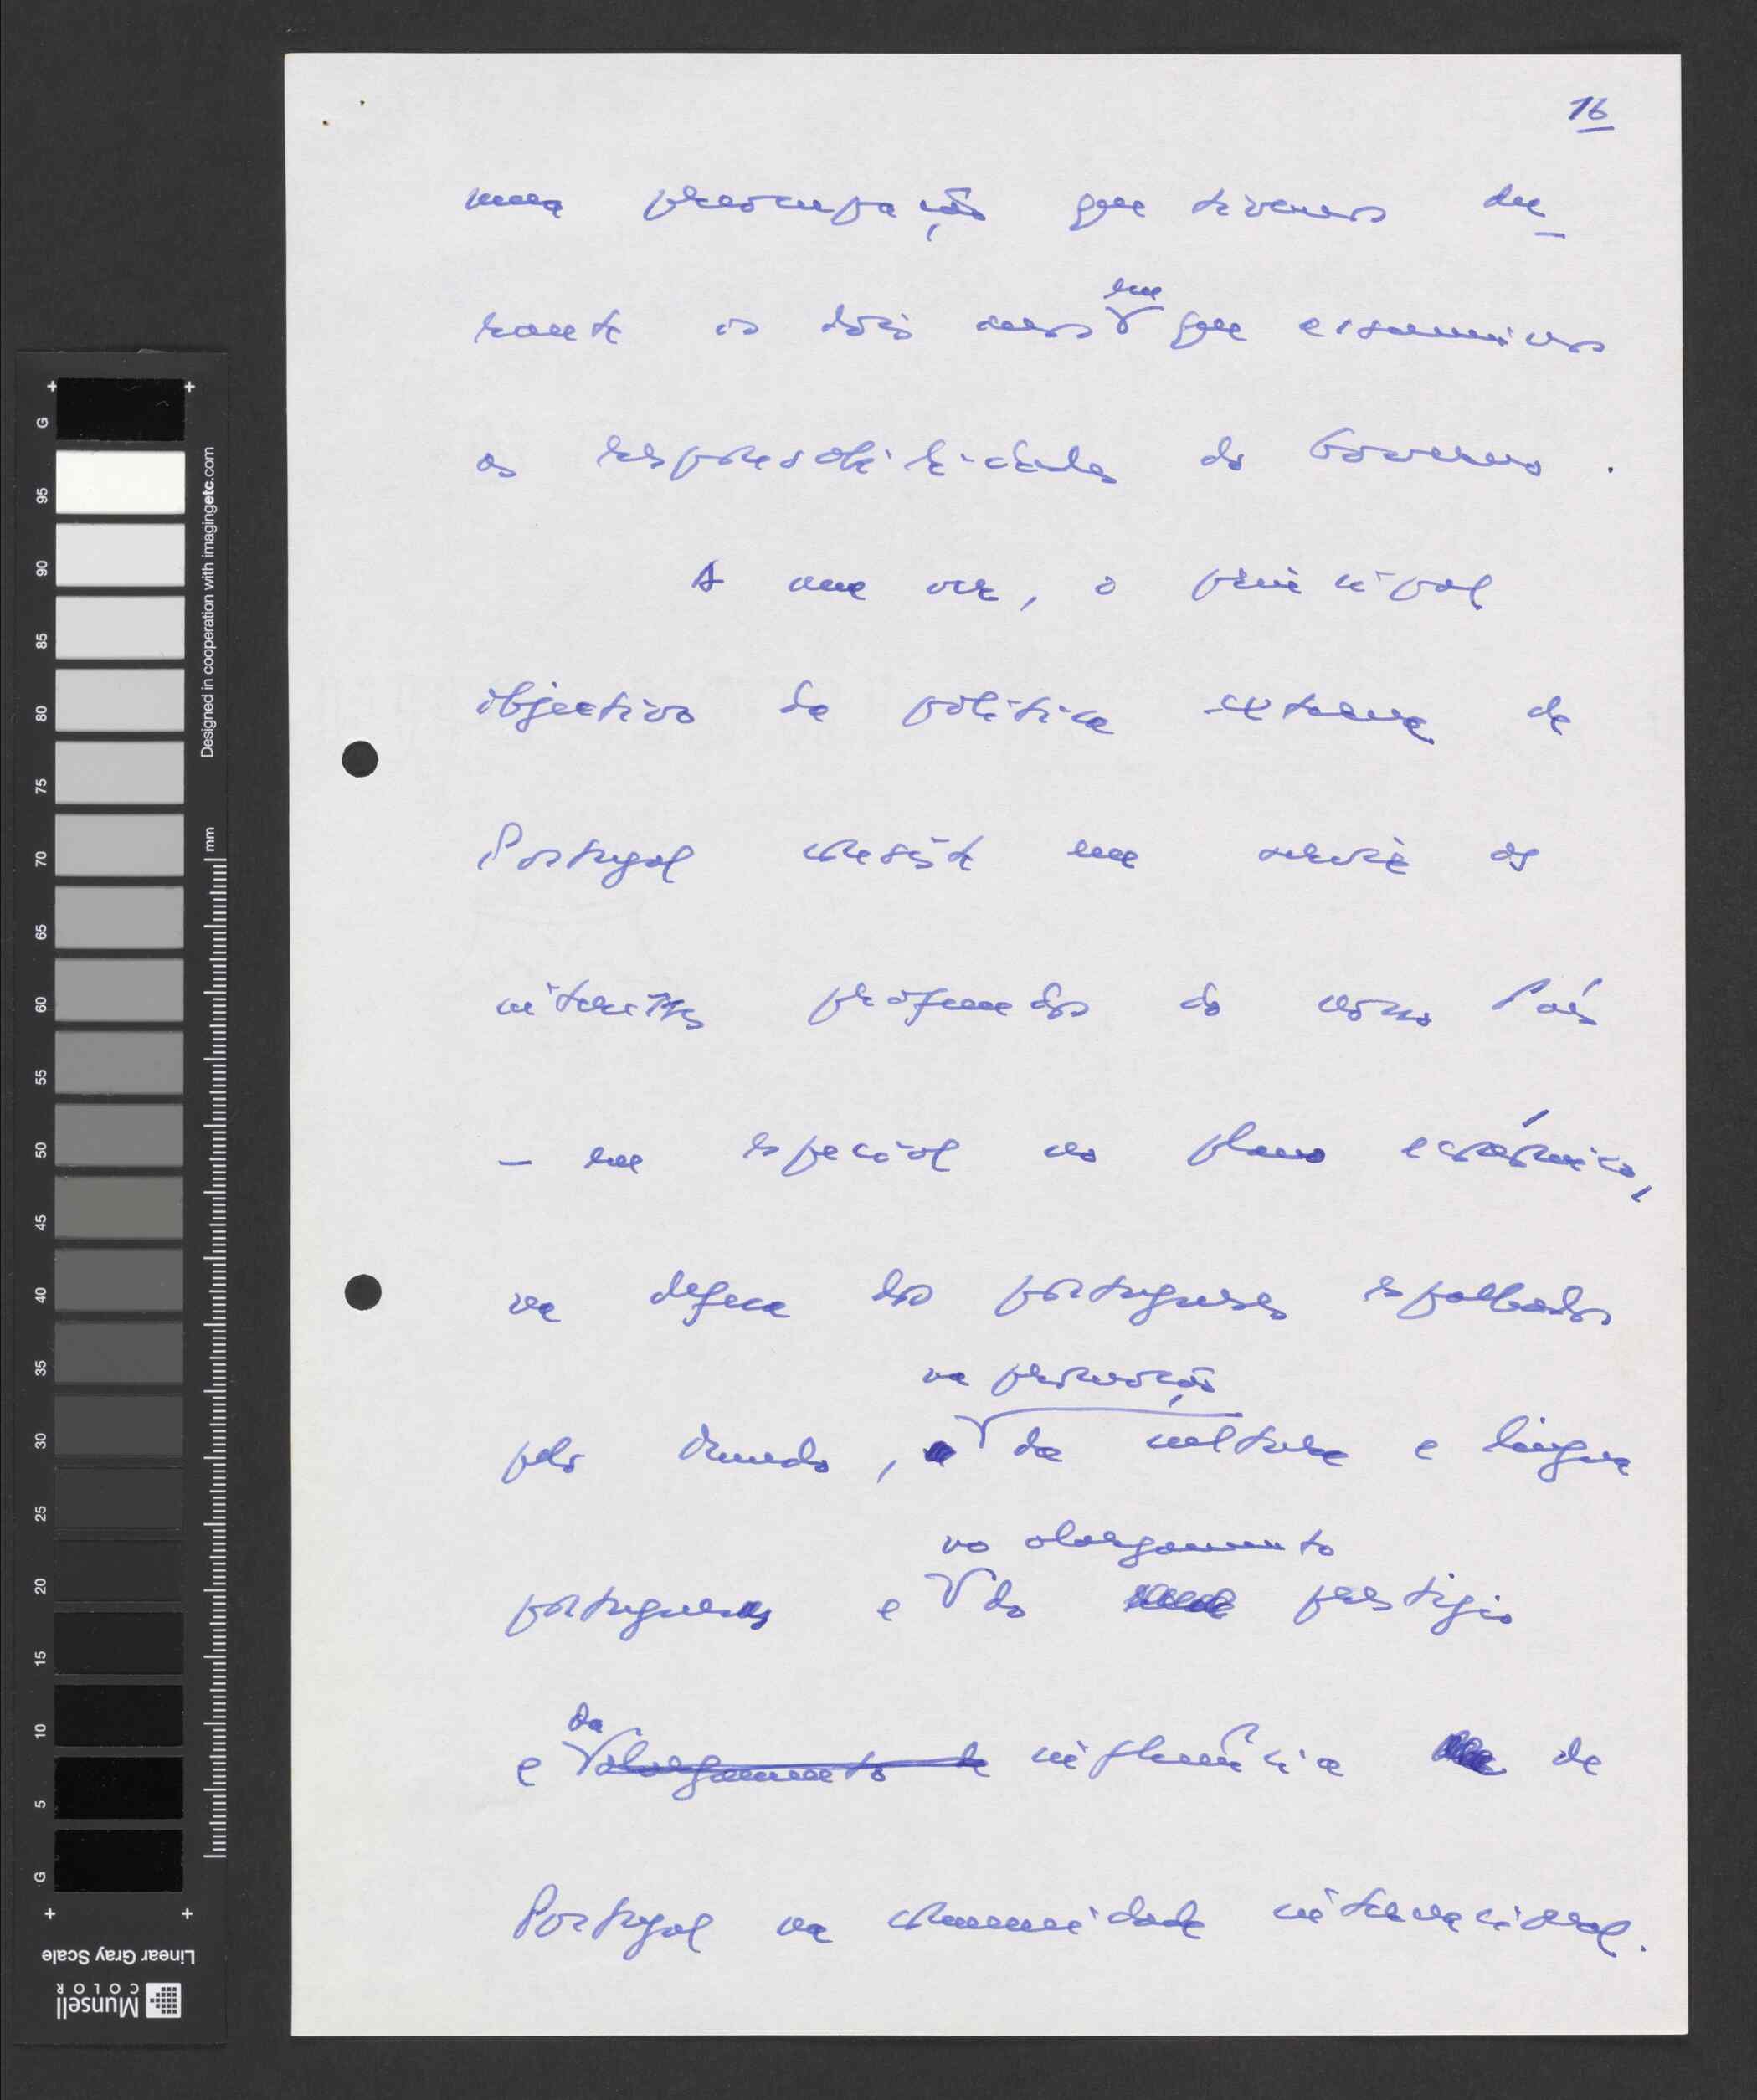 16
uma preocupação que tivemos du-
em
rante os dois anos que assumimos
as responsabilidades do Governo.
A meu ver, o principal
objectivo da política externa de
Portugal consiste em servir os
interesses profundos do nosso País
- em especial no plano económico,
na defesa dos portugueses espalhados
na promoção
pelo Mundo, da cultura e língua
no alargamento
portuguesas e do prestígio
da
e alargamento de influência de
Portugal na comunidade internacional.
G
95
90
85
80
75
70
65
60
55
50
45
40
35
30
25
20
15
10
5
G
Designed in cooperation with imagingetc.com
mm
Linear Gray Scale
Munsell
COLOR